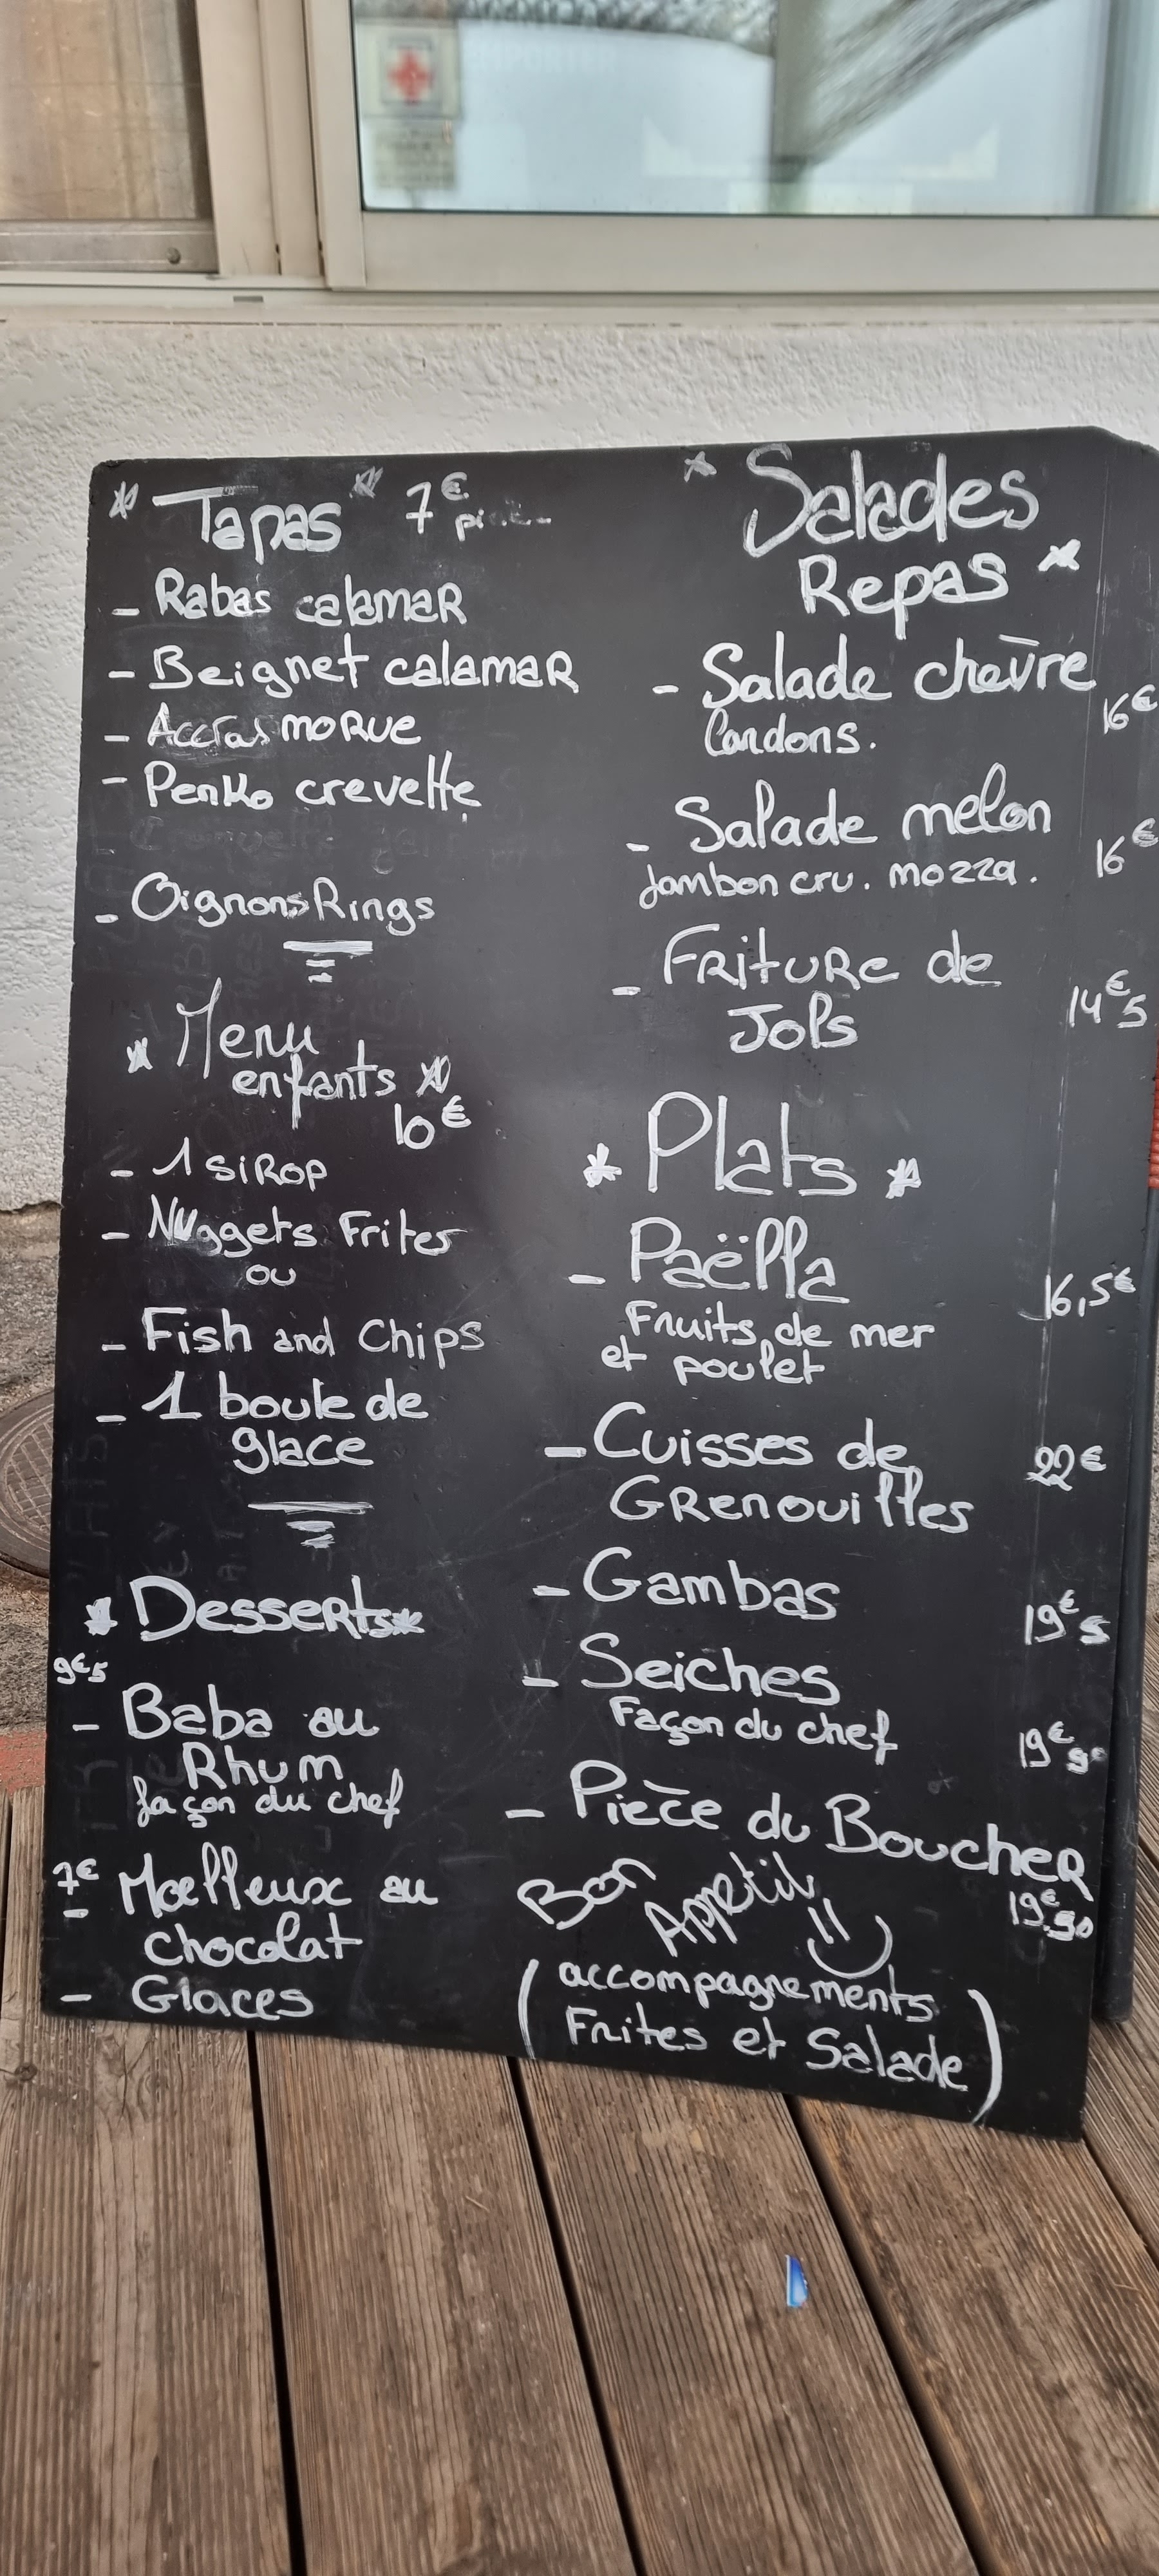 * Tapas * 7€
- Rabas calamar
- Beignet calamar
- Accras morue
- Penko crevette
- Oignons Rings
* Menu
enfants *
10€
- 1 sirop
- Nuggets Frites
ou
- Fish and Chips
- 1 boule de
glace
* Desserts *
9€5
- Baba au
Rhum
façon du chef
7€
- Moelleux au
chocolat
- Glaces
* Salades
Repas *
- Salade chèvre
lardons. 16€
- Salade melon
jambon cru. mozza. 16€
- Friture de
Jols 14€5
* Plats *
- Paëlla 16,5€
Fruits de mer
et poulet
- Cuisses de 22€
Grenouilles
- Gambas 19€5
- Seiches
Façon du chef 19€90
- Pièce du Boucher
19€90
Bon Appétit
(accompagnements
Frites et Salade)